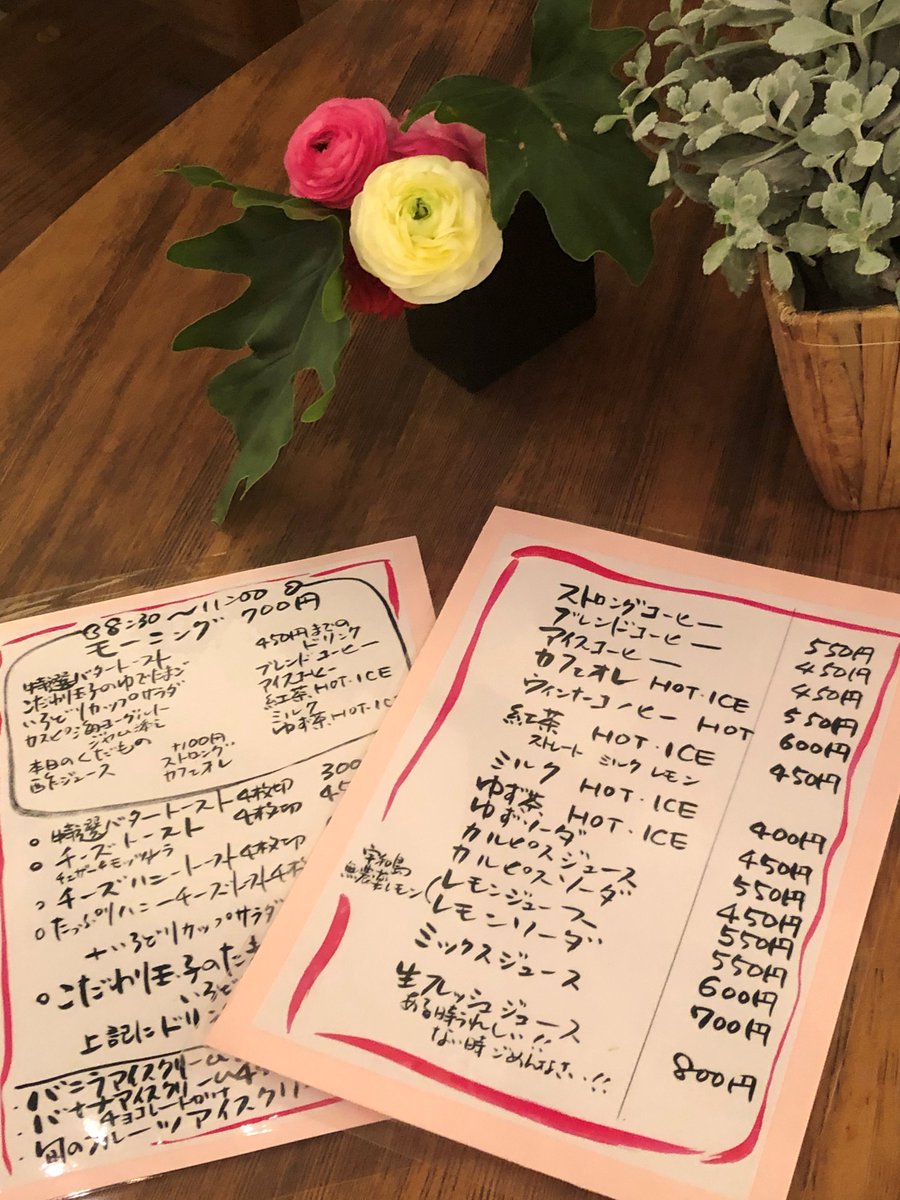 8:30〜11:00
モーニング 700円
特選バタートースト
こだわり玉子のゆでたまご
いろどりカップサラダ
カスピ海ヨーグルト
ジャム添え
本日のくだもの
酢ジュース
450円までの
ドリンク
ブレンドコーヒー
アイスコーヒー
紅茶、HOT・ICE
ミルク
ゆず茶、HOT・ICE
+100円
ストロング
カフェオレ
○特選バタートースト4枚切 300
○チーズトースト 4枚切 45
チェダー&モッツァレラ
○チーズハニートースト4枚切
○たっぷりハニーチーズトースト4枚
+いろどりカップサラダ
○こだわり玉子のたま
いろど
上記にドリン
・バニラアイスクリーム
・バナナアイスクリーム
チョコレートがけ
・旬のフルーツアイスクリ
ストロングコーヒー 550円
ブレンドコーヒー 450円
アイスコーヒー 450円
カフェオレ HOT・ICE 550円
ウィンナーコーヒー HOT 600円
紅茶 HOT・ICE 450円
ストレート ミルク レモン
ミルク HOT・ICE 400円
ゆず茶 HOT・ICE 450円
ゆずソーダ 550円
カルピスジュース 450円
カルピスソーダ 550円
宇和島
無農薬レモン
レモンジュース 550円
レモンソーダ 600円
ミックスジュース 700円
生フレッシュジュース 800円
ある時うれしい!!
ない時ごめんなさい!!